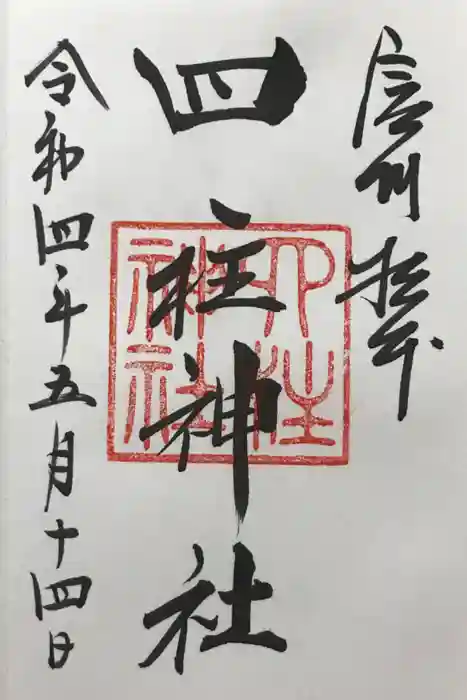 信州 拝
四柱神社
四柱神社
令和四年五月十四日